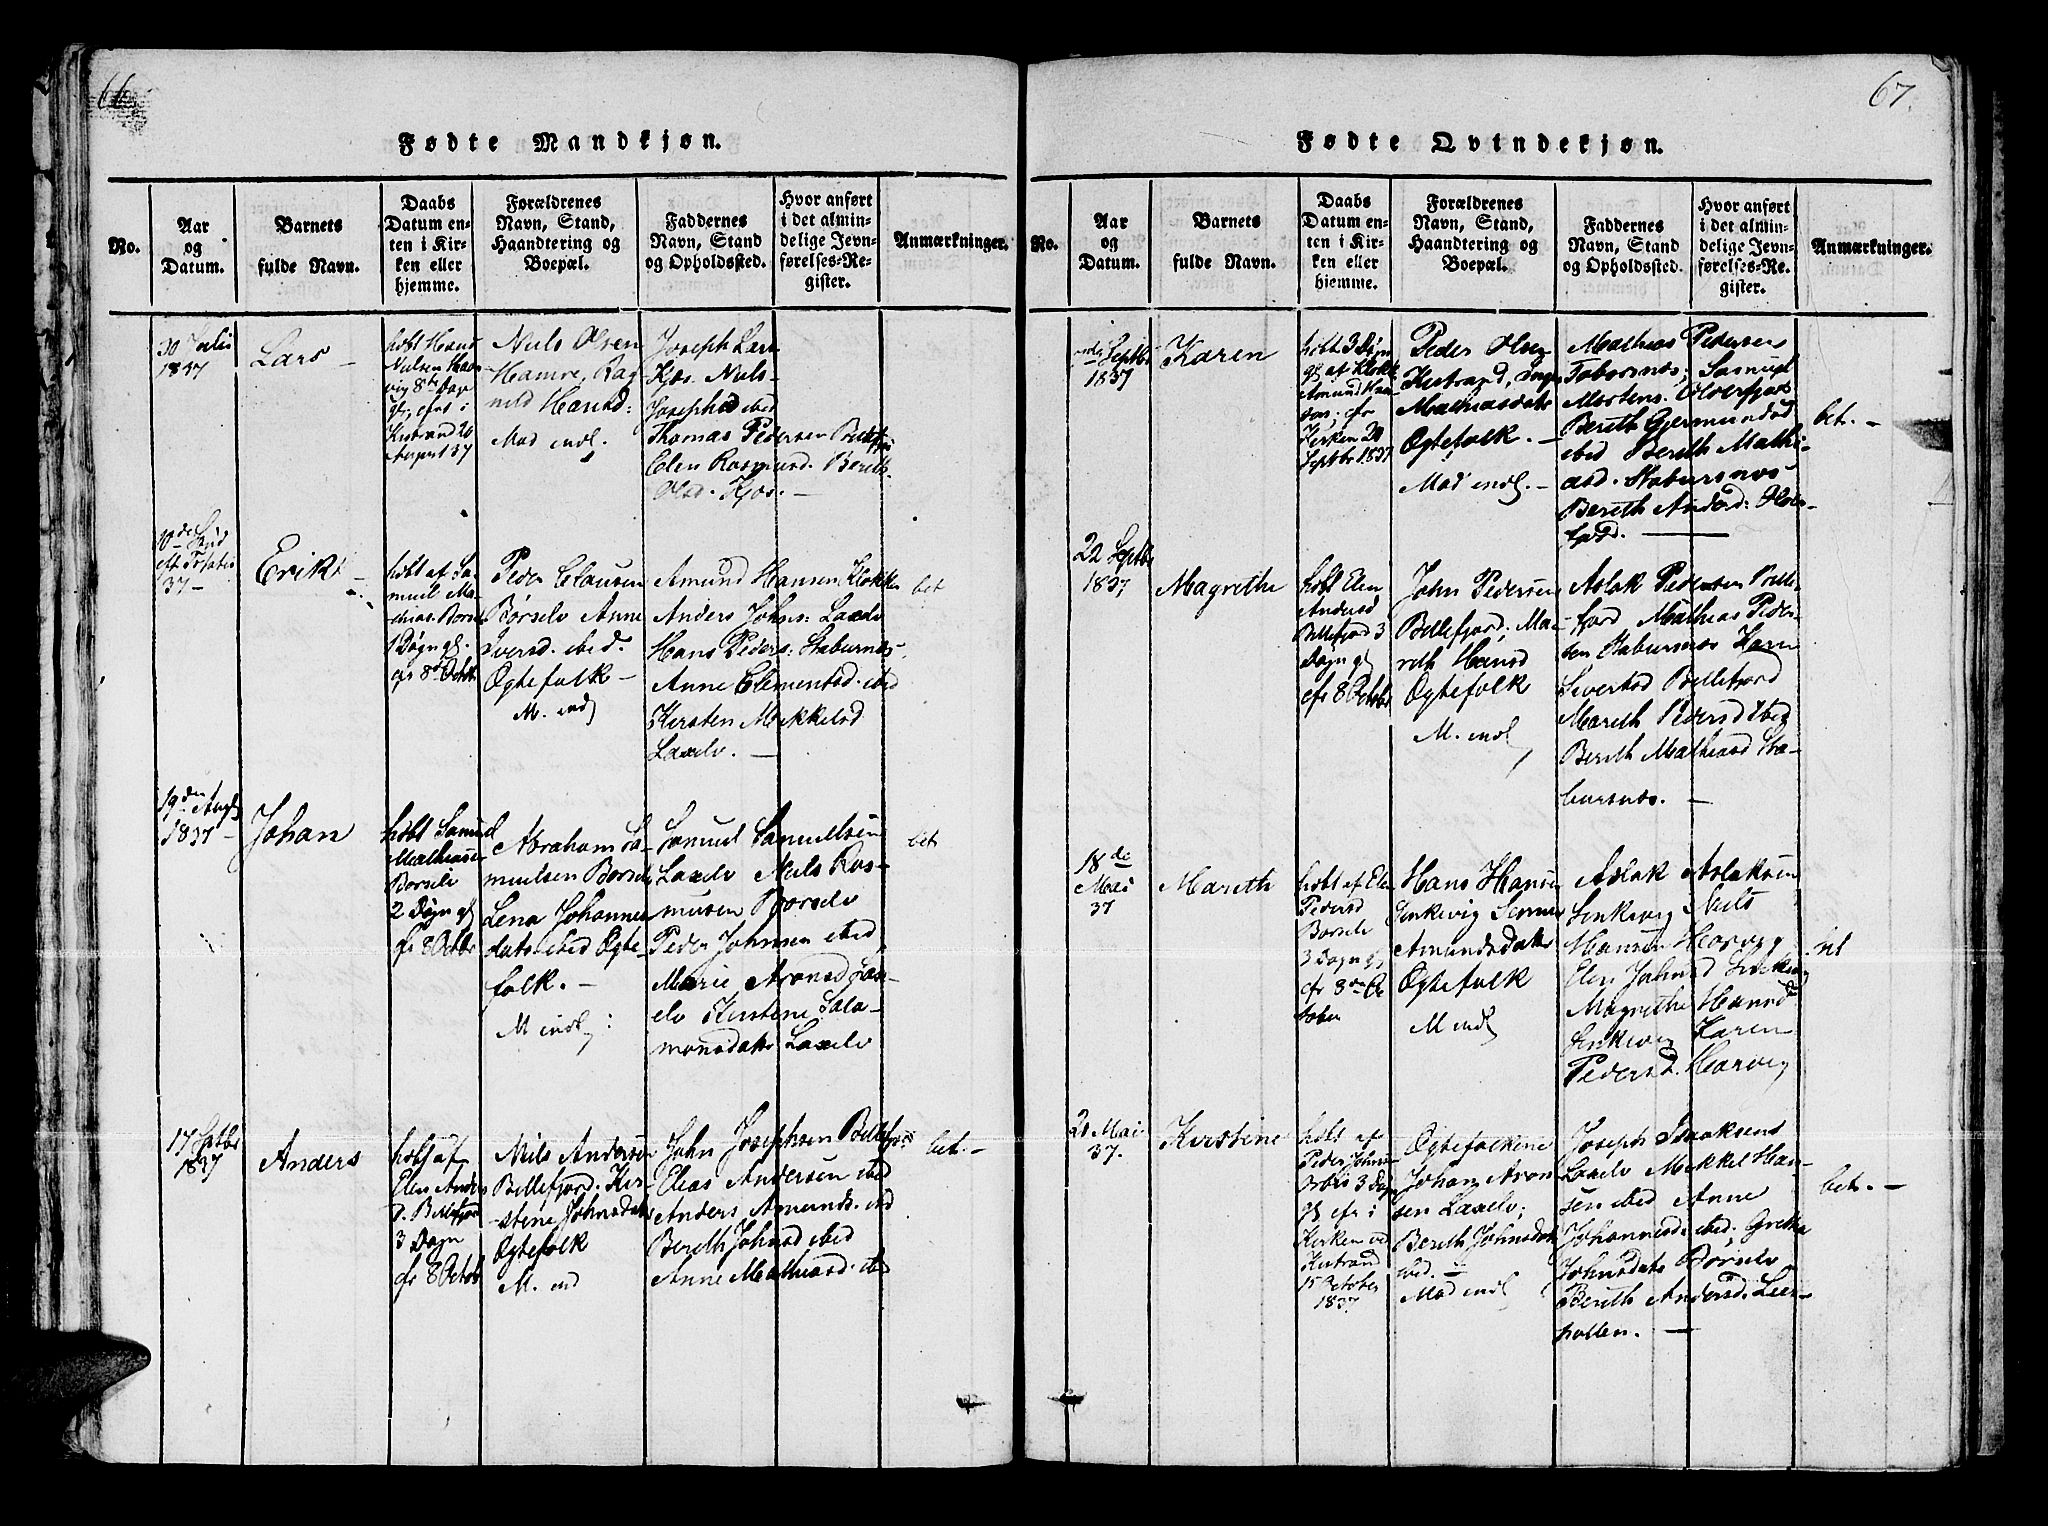 66
Fødte Mandkjøn.
No.
Aar
og
Datum.
Barnets
fulde Navn.
Daabs
Datum en-
ten i Kir-
ken eller
hjemme.
Forældrenes
Navn, Stand,
Haandtering og
Boepæl.
Faddernes
Navn, Stand
og Opholdssted.
Hvor anført
i det almin-
delige Jevn-
førelses-Re-
gister.
Anmærkninger.
30 Julii
1837
Lars
hdbt Hans
Nielsen
vig 8te Dage
gl, cfrs i
Kistrand 26
August 37
Niels Olsen
Hamre, Rag
nild Hansd:
Mad indl.
Joseph Lars
Kjæs. Niels
Josephsd ibid
Thomas Pedersen Billefj
Elen Rasmusd. Bereth
Olsd. Kjæs. —
37
Erik
hdbt af Sa
muel Ma
thias. Børselv
1 Døgn gl.
cfr 8de Octbr
Peder Clausen
Børselv Anne
Iversd. ibid.
Ægtefolk —
M. indl
Amund Hansen Klokker
Anders Johns: Laxelv
Hans Peders: Stabursnæs
Anne Clementsd. ibid
Kersten Mikkelsd
Laxelv. —
bet
19de Augst
1837 —
Johan
hdbt Samuel
Mathiasen
Børselv
2 Døgn gl
cfr 8 Octbr
Abraham Sa
muelsen Børselv
Lena Johannes
datr ibid Ægte
folk. —
M indl:
Samuel Samuelsen
Laxelv Niels Ras-
musen Børselv
Peder Johnsen ibid
Marie Aronsd Lax-
elv Kirstene Salo-
monsdatr Laxelv
bet
17 Septbr
1837
Anders
hdbt af
Elen Anders
d. Billefjor
3 Døgn
cfr 8 Octob
Niels Andersen
Billefjord. Kir-
stene Johnsdatr
Ægtefolk
M. ind
John Josephsen Billefjord
Elias Andersen ibid
Anders Amunds. ibid
Bereth Johnsd ibid
Anne Mathiasd. ibid
bet. —
67.
Fødte Qvindekjøn.
No.
Aar
og
Datum.
Barnets
fulde Navn.
Daabs
Datum en-
ten i Kir-
ken eller
hjemme.
Forældrenes
Navn, Stand,
Haandtering og
Boepæl.
Faddernes
Navn, Stand
og Opholdssted.
Hvor anført
i det almin-
delige Jevn-
førelses-Re-
gister.
Anmærkninger.
Septbr
1837
Karen
hdbt 3 Døgn
gl af Klokk
Amund Han
sen; cfr
Kirken 20
Septbr 1837
Peder Olsen
Kistrand, Inge
Mathiasdatr
Ægtefolk. —
Mad indl. —
Mathias Pedersen
Samuel
Mortens. Olderfjord
Bereth Gjermundsd
ibid Bereth Mathi-
asd. Stabursnæs
Bereth Andersd: Older-
fjord. —
bet. —
22 Septbr
1837
Magrethe
hdbt Elen
Andersd
Billefjord 3
Døgn gl
cfr 8 Octobr
John Pedersen
Billefjord; Ma-
reth Hansd
Ægtefolk
M. indl
Aslak Pedersen Bille-
fjord Mathias Peder-
sen Stabursnæs Karen
Sivertsd Billefjord
Mareth Pedersd ibid
Bereth Mathiasd Sta-
bursnæs. —
18de
Mai
37
Mareth
hdbt af Elen
Pedersd
Børselv
3 Døgn gl
cfr 8de Oc
tober
Hans Hansen
Amundsdatr
Ægtefolk
M indl
Aslak Aslaksen
Niels
Hansen
Elen Johnsd
Magrethe Hansd
Karen
Pedersd.
bet
21 Mai
37.
Kirstine
hdbt af
Peder Johnsen
3 Døgn
gl cfr i
Kirken ved
Kistrand
15 October
1837
Ægtefolkene
Johan Aron
sen Laxelv;
Bereth Johnsdatr
ibid. —
Mad indl
Joseph Isaaksen
Laxelv Mikkel Han-
sen ibid Anne
Johannesd. ibid; Grethe
Johnsdatr Børselv
Bereth Andersd. Leer-
pollen. —
bet. —